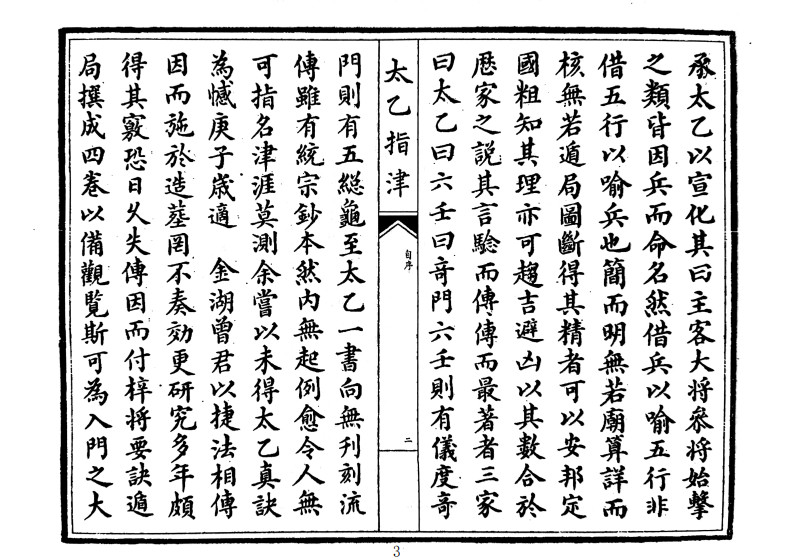 承太乙以宣化其曰主客大將參將始擊
之類皆因兵而命名然借兵以喻五行非
借五行以喻兵也簡而明無若廟算詳而
核無若遁局圖斷得其精者可以安邦定
國粗知其理亦可趨吉避凶以其數合於
厯家之説其言驗而傳傳而最著者三家
曰太乙曰六壬曰竒門六壬則有儀度竒
太乙指津
自序
二
門則有五總龜至太乙一書向無刋刻流
傳雖有統宗鈔本然内無起例愈令人無
可指名津涯莫測余嘗以未得太乙真訣
為憾庚子歳適 金湖曾君以捷法相傳
因而施於造塟罔不奏効更硏究多年頗
得其竅恐日久失傳因而付梓將要訣遁
局撰成四卷以備觀覧斯可為入門之大
3